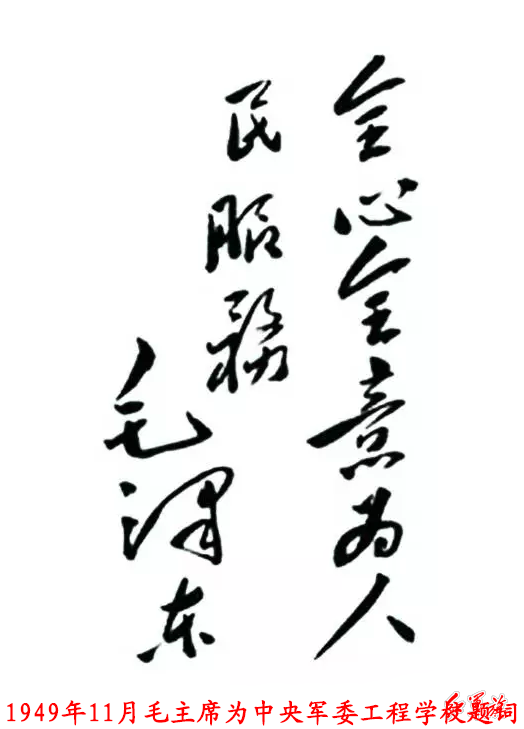 全心全意为人
民服務
毛泽东
1949年11月毛主席为中央军委工程学校题词